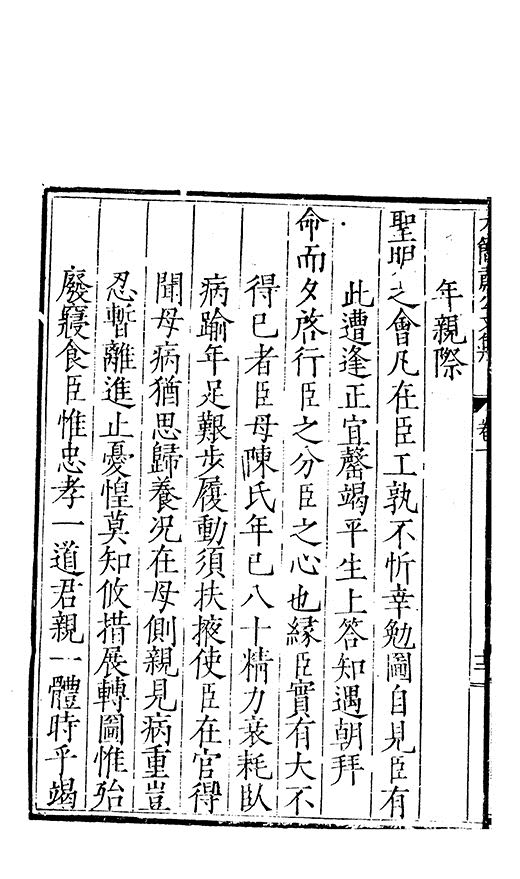 年親際
聖明之會凡在臣工孰不忻幸勉圖自見臣有
此遭逢正宜罄竭平生上答知遇朝拜
命而夕啓行臣之分臣之心也緣臣實有大不
得已者臣母陳氏年已八十精力衰耗臥
病踰年足艱步履動須扶掖使臣在官得
聞母病猶思歸養况在母側親見病重豈
忍暫離進止憂惶莫知攸措展轉圖惟殆
廢寢食臣惟忠孝一道君親一體時乎竭